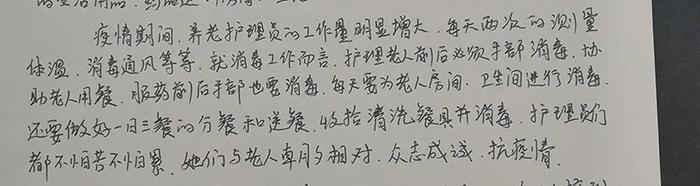 疫情期间，养老护理员的工作量明显增大，每天两次的测量
体温，消毒通风等等，就消毒工作而言，护理老人前后必须手部消毒，协
助老人用餐、服药前后手部也要消毒，每天要为老人房间、卫生间进行消毒，
还要做好一日三餐的分餐和送餐，收拾清洗餐具并消毒，护理员们
都不怕苦不怕累，她们与老人朝夕相对，众志成诚，抗疫情。